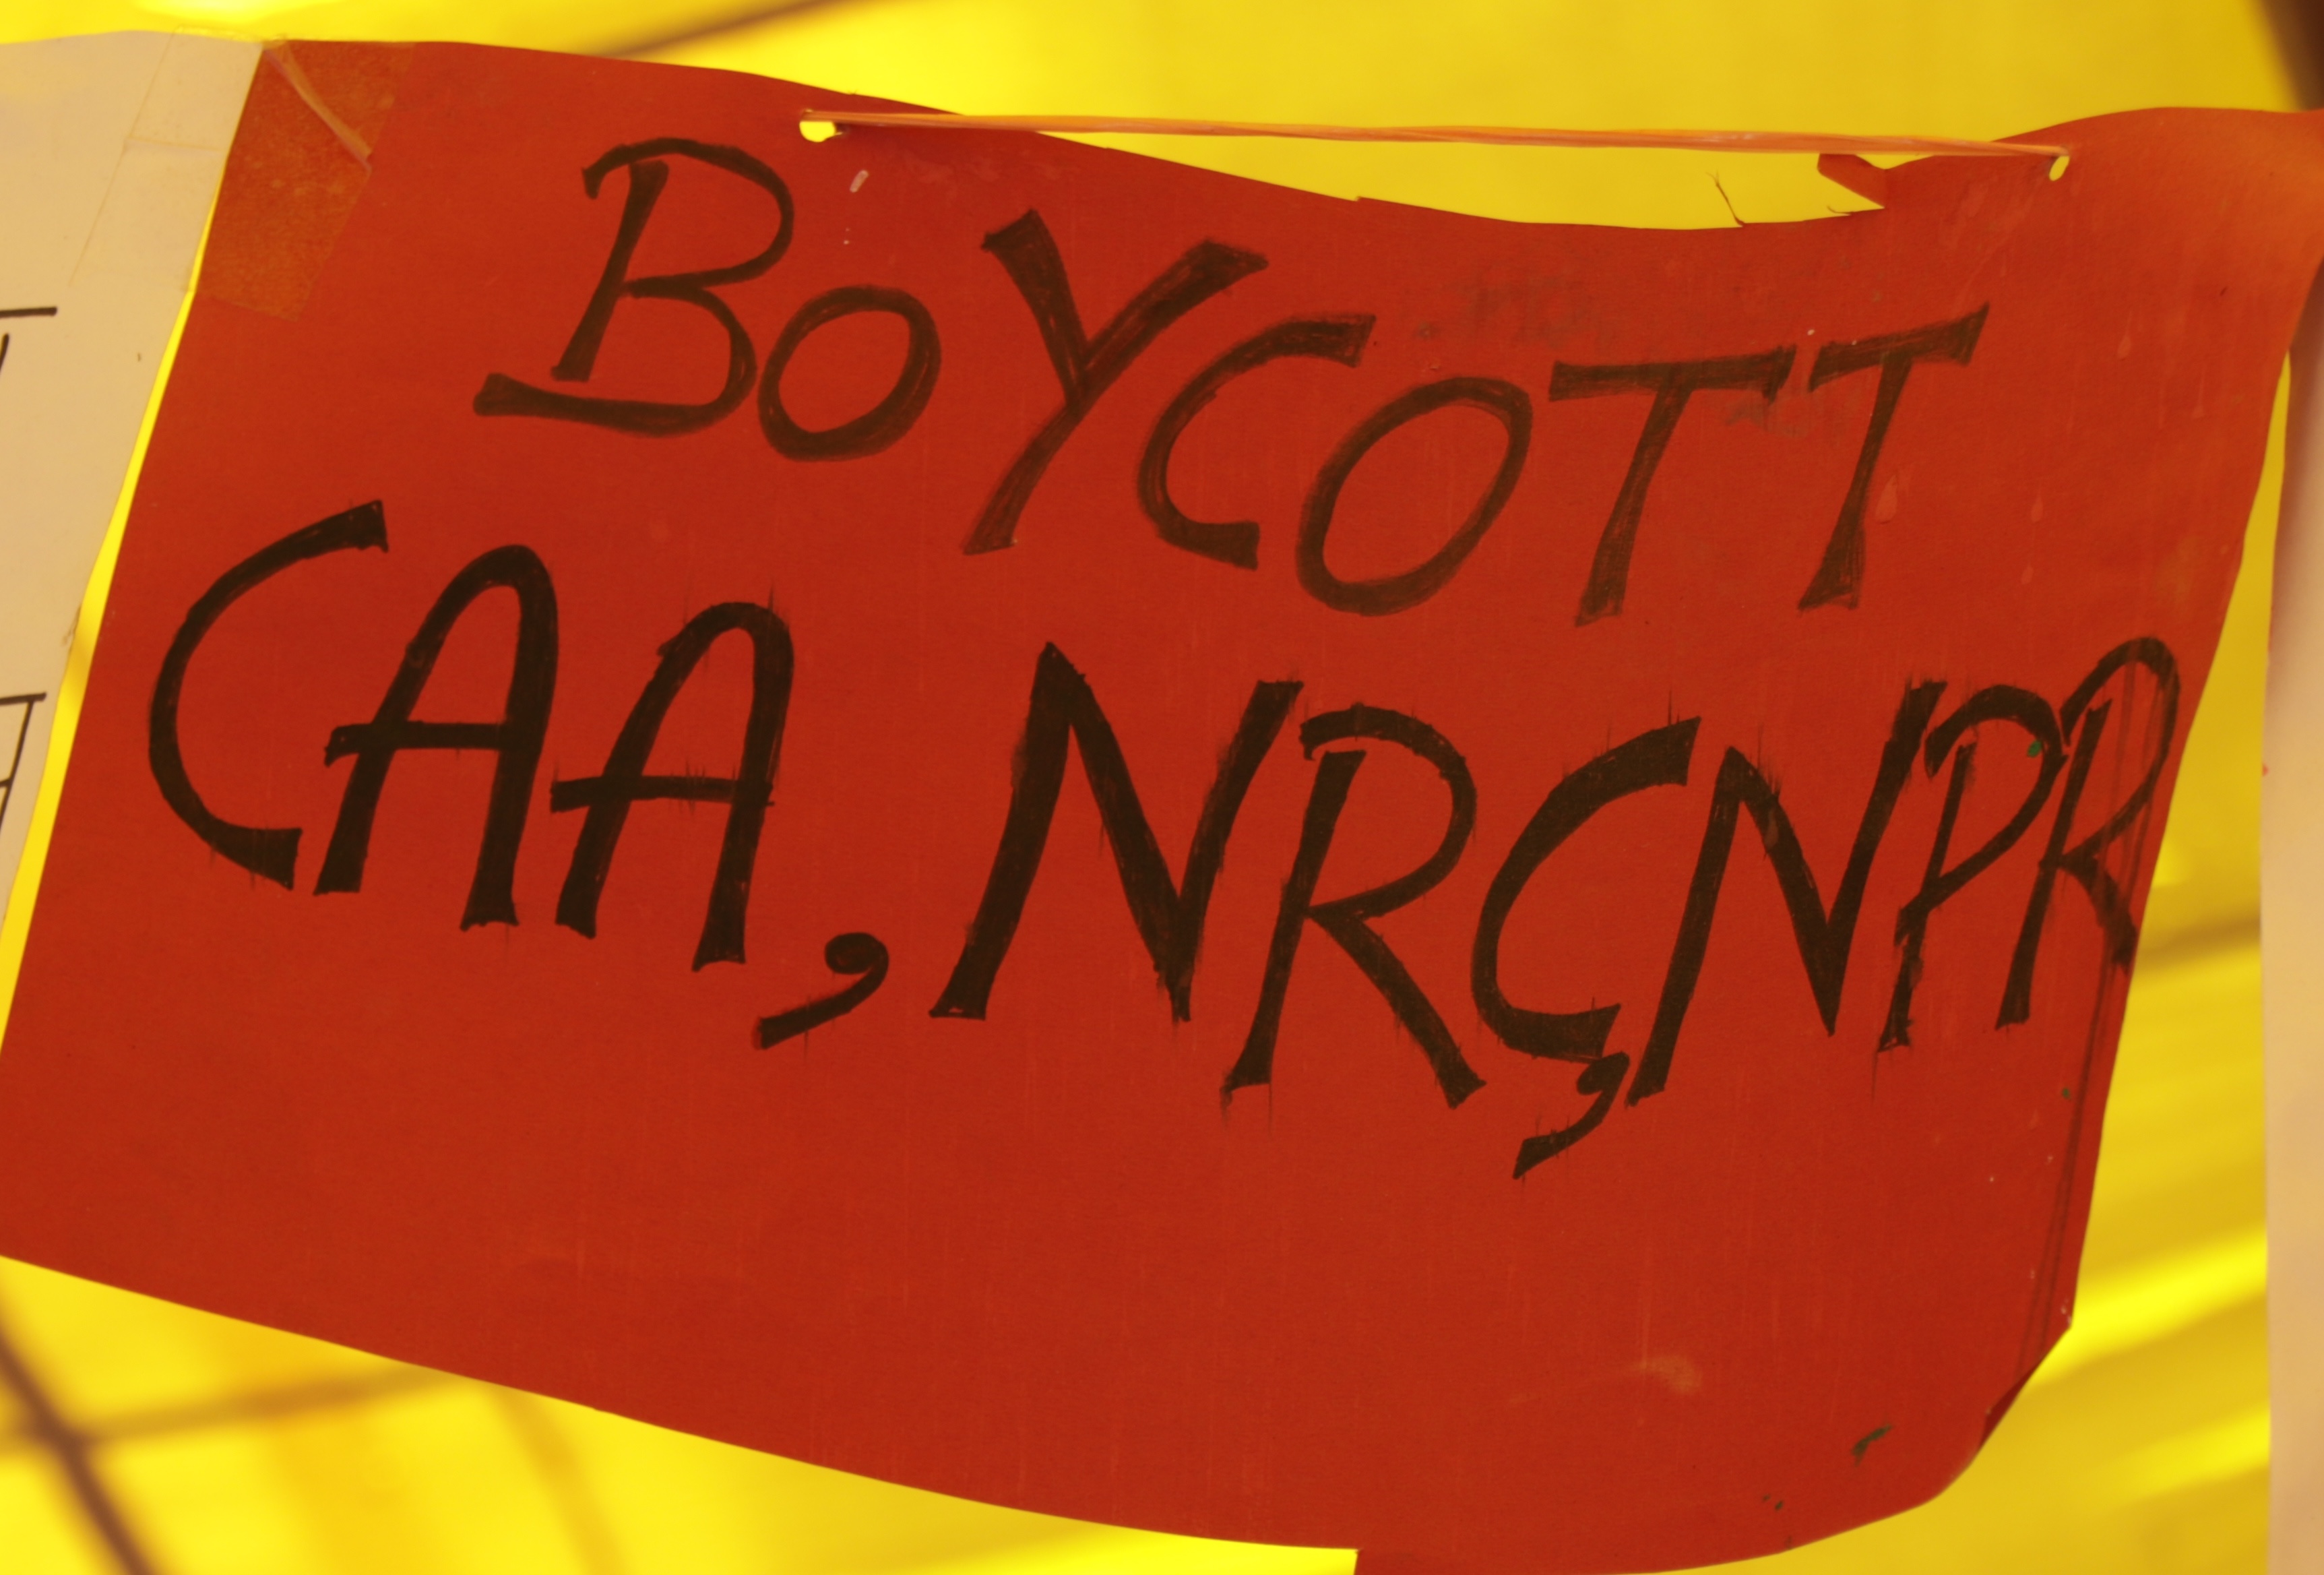 BOYCOTT
CAA, NRC, NPR